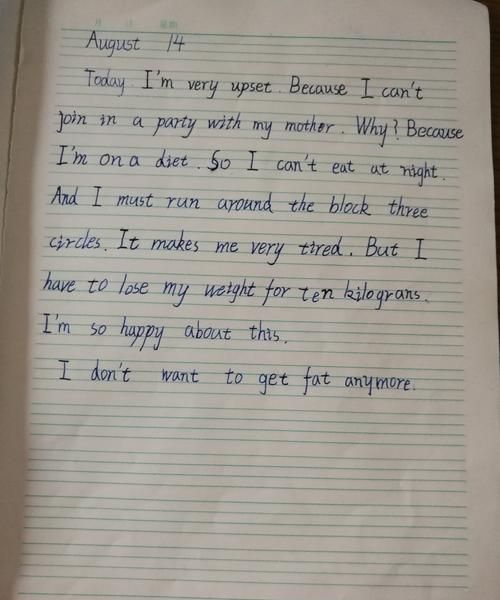 月 日 星期
August 14
Today I'm very upset. Because I can't
join in a party with my mother. Why? Because
I'm on a diet. So I can't eat at night.
And I must run around the block three
circles. It makes me very tired. But I
have to lose my weight for ten kilograns.
I'm so happy about this.
I don't want to get fat anymore.